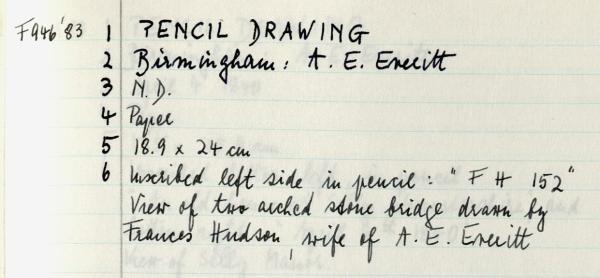 F946'83 1 PENCIL DRAWING
2 Birmingham: A. E. Everitt
3 N.D.
4 Paper
5 18.9 x 24 cm
6 Inscribed left side in pencil: "F H 152"
View of two arched stone bridge drawn by
Frances Hudson, wife of A. E. Everitt